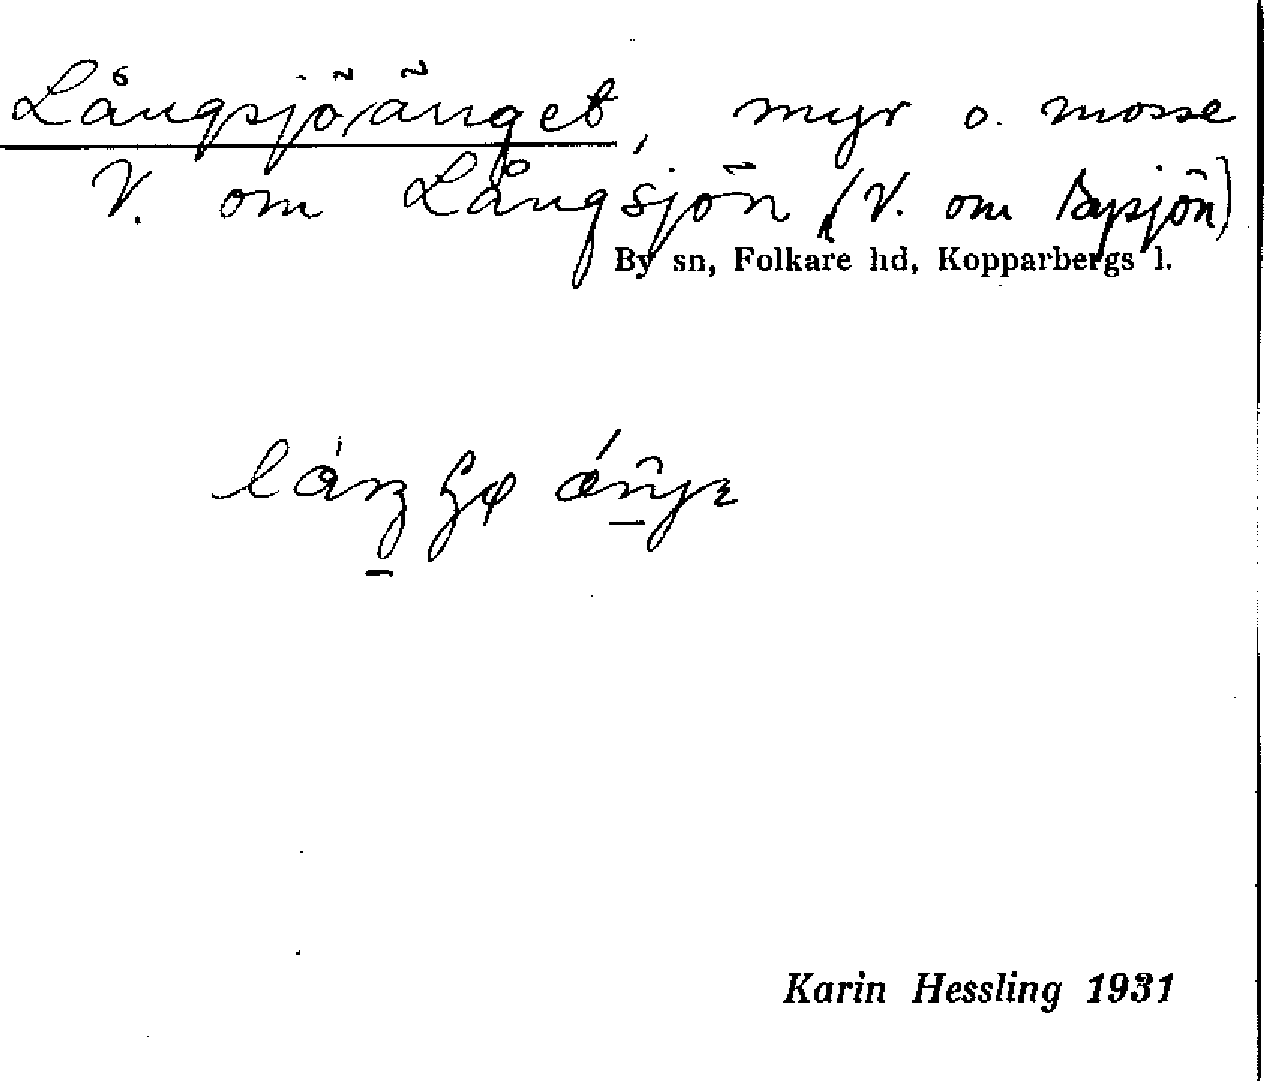 Långsjöänget, myr o. mosse
V. om Långsjön (V. om Bysjön)
By sn, Folkare hd, Kopparbergs l.
Karin Hessling 1931